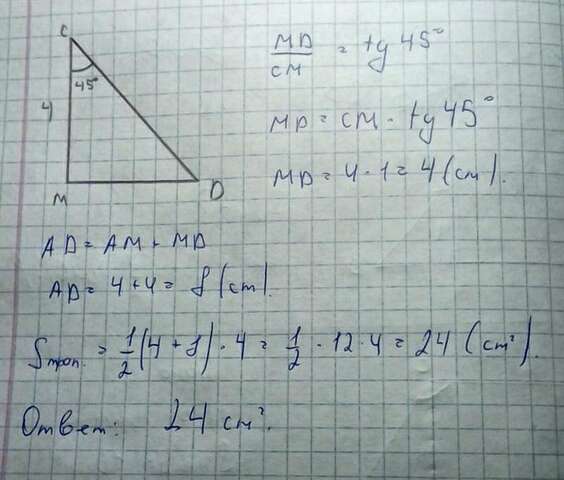 C
45°
4
M
D
MD/CM = tg 45°
MD = CM · tg 45°
MD = 4 · 1 = 4 (см).
AD = AM + MD
AD = 4 + 4 = 8 (см).
Sтрап. = 1/2 (4 + 8) · 4 = 1/2 · 12 · 4 = 24 (см²).
Ответ: 24 см².